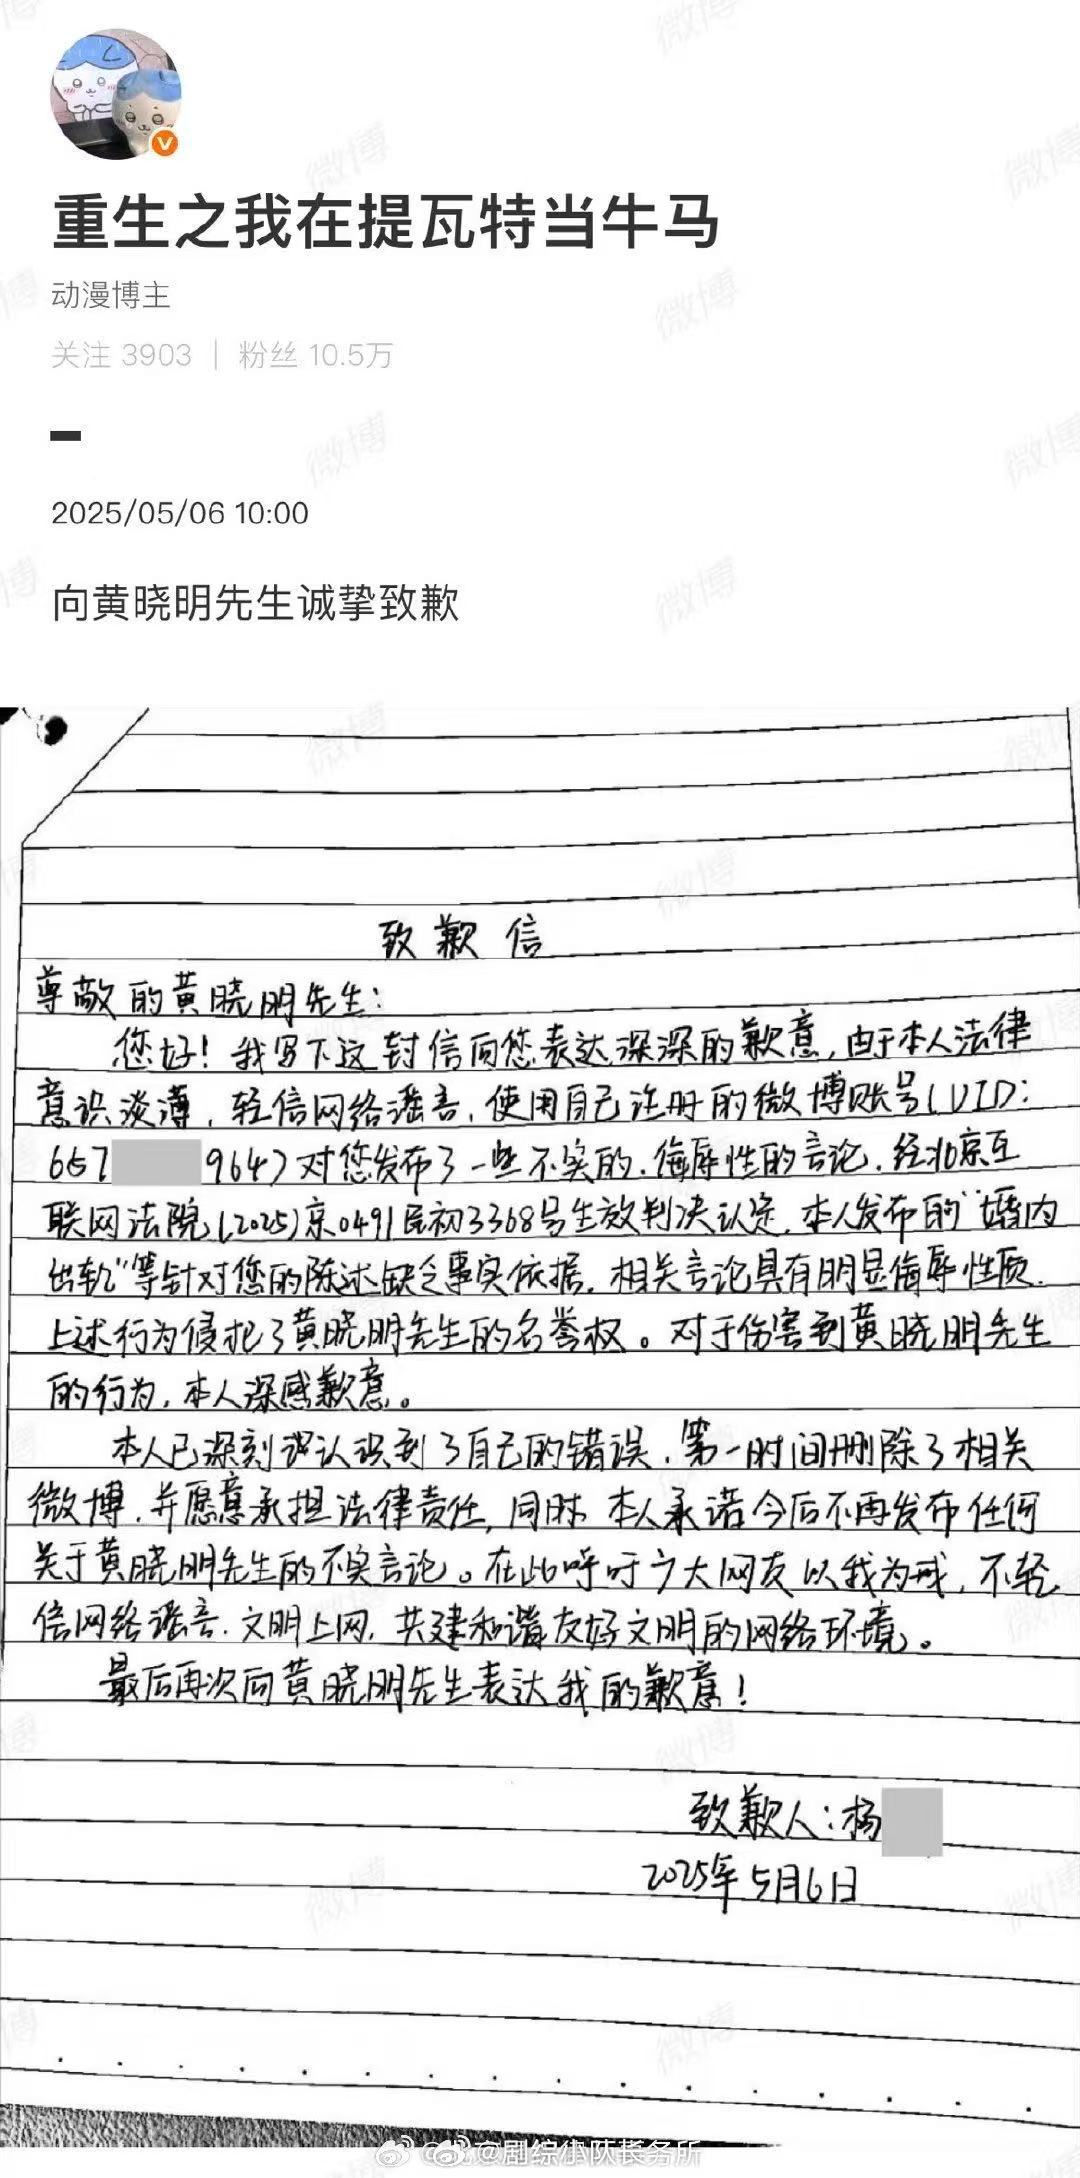 重生之我在提瓦特当牛马
动漫博主
关注 3903 | 粉丝 10.5万
2025/05/06 10:00
向黄晓明先生诚挚致歉
致歉信
尊敬的黄晓明先生：
您好！我写下这封信向您表达深深的歉意，由于本人法律
意识淡薄，轻信网络谣言，使用自己注册的微博账号(UID:
657 9647)对您发布了一些不实的、侮辱性的言论，经北京互
联网法院(2025)京0491民初3368号生效判决认定，本人发布的“婚内
出轨”等针对您的陈述缺乏事实依据，相关言论具有明显侮辱性质，
上述行为侵犯了黄晓明先生的名誉权。对于伤害到黄晓明先生
的行为，本人深感歉意。
本人已深刻认识到了自己的错误，第一时间删除了相关
微博，并愿意承担法律责任，同时，本人承诺今后不再发布任何
关于黄晓明先生的不实言论。在此呼吁广大网友以我为戒，不轻
信网络谣言，文明上网，共建和谐友好文明的网络环境。
最后再次向黄晓明先生表达我的歉意！
致歉人：杨
2025年5月6日
@剧综小队长务所
微博